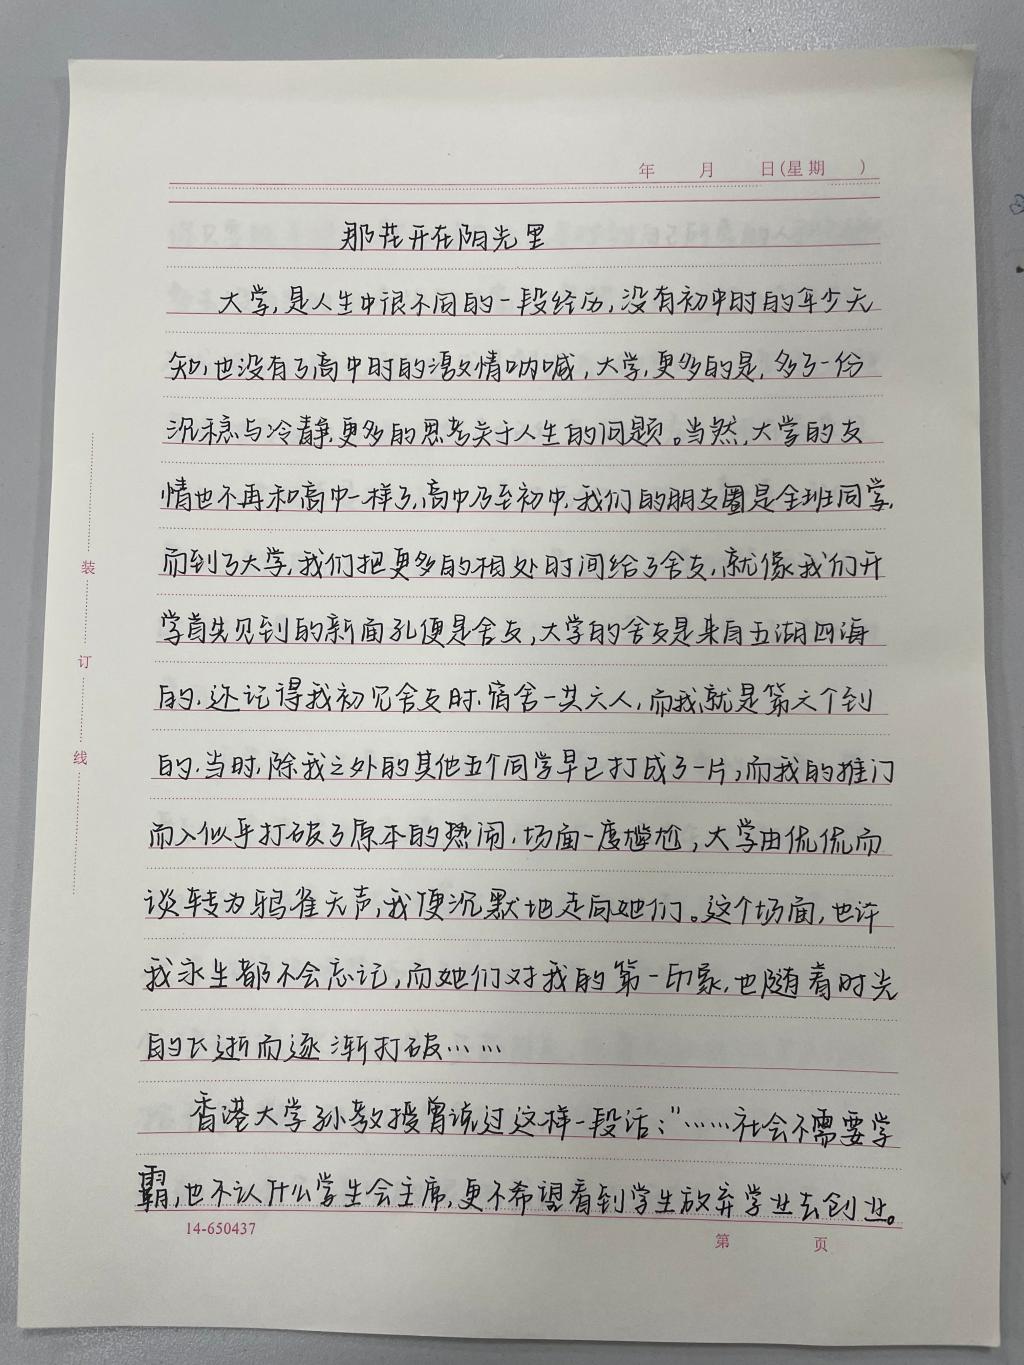 年 月 日(星期 )
那花开在阳光里
大学,是人生中很不同的一段经历,没有初中时的年少无
知,也没有了高中时的激情呐喊,大学,更多的是,多了一份
沉稳与冷静,更多的思考关于人生的问题。当然,大学的友
情也不再和高中一样了,高中乃至初中,我们的朋友圈是全班同学,
而到了大学,我们把更多的相处时间给了舍友,就像我们开
学首先见到的新面孔便是舍友,大学的舍友是来自五湖四海
的,还记得我初见舍友时,宿舍一共六人,而我就是第六个到
的,当时,除我之外的其他五个同学早已打成了一片,而我的推门
而入似乎打破了原本的热闹,场面一度尴尬,大学由侃侃而
谈转为鸦雀无声,我便沉默地走向她们。这个场面,也许
我永生都不会忘记,而她们对我的第一印象,也随着时光
的飞逝而逐渐打破……
香港大学孙教授曾说过这样一段话:"……社会不需要学
霸,也不认什么学生会主席,更不希望看到学生放弃学业去创业。
装
订
线
14-650437
第 页